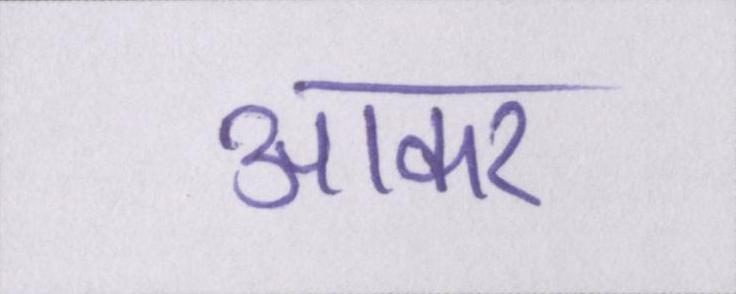 आकर